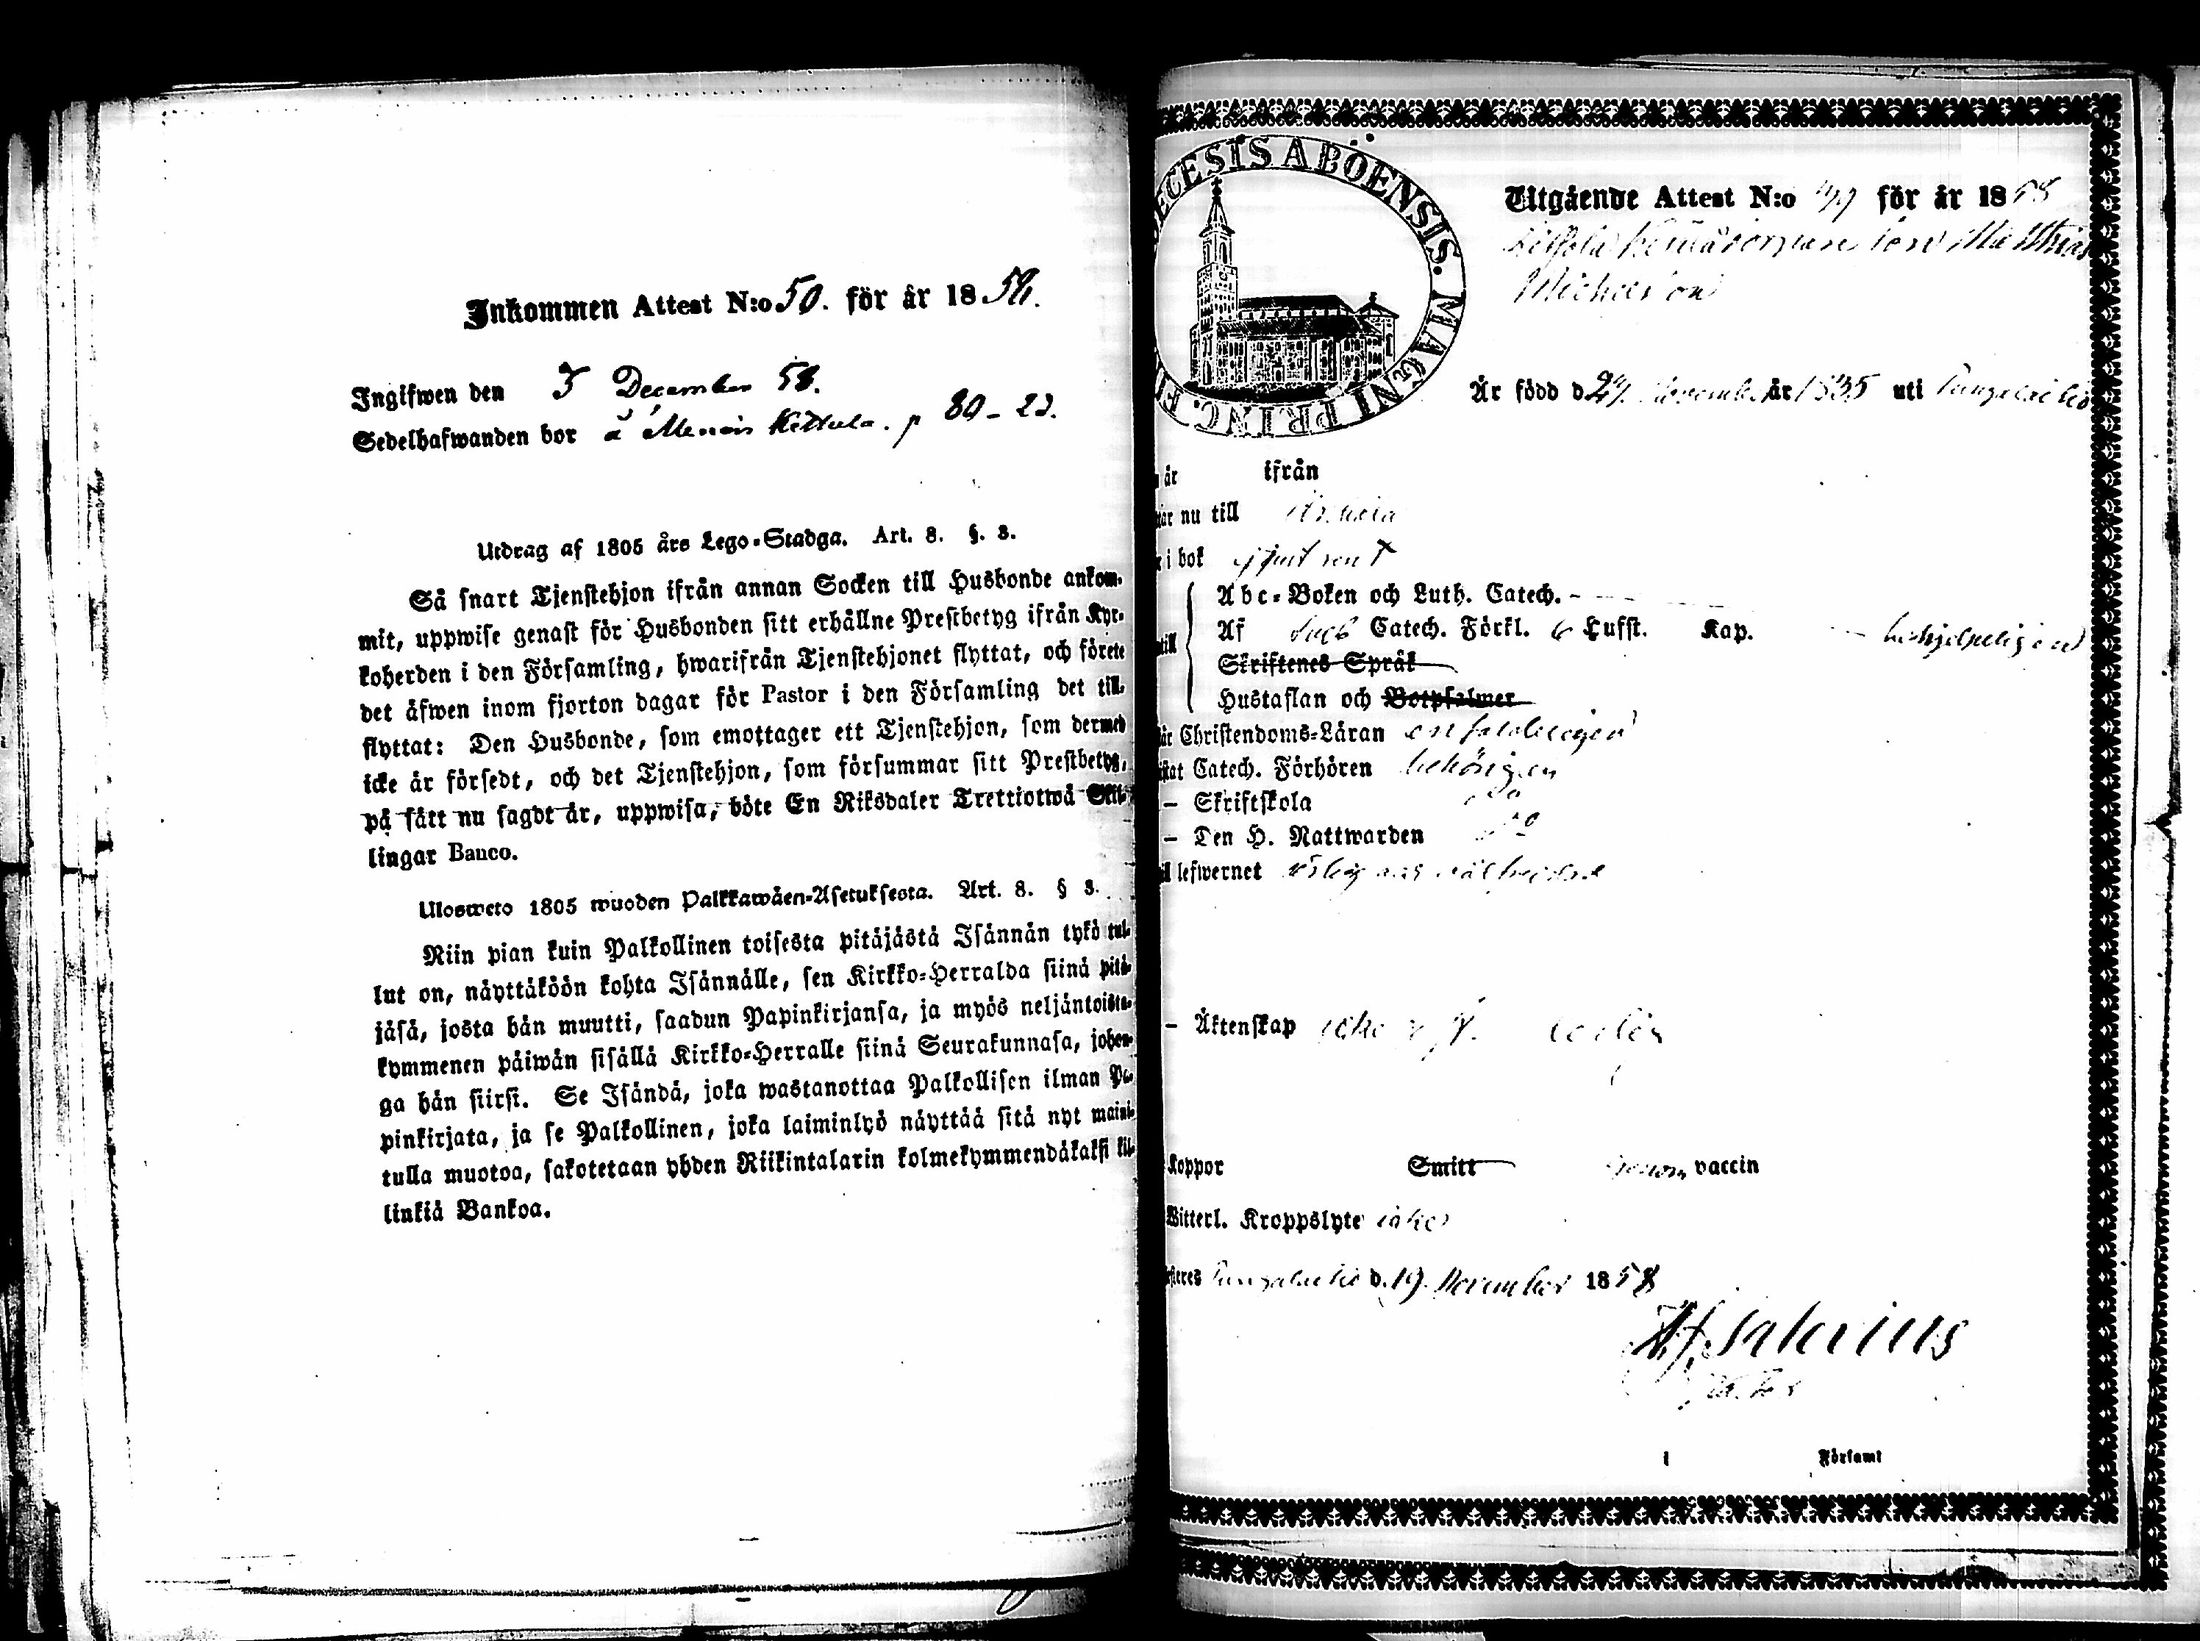 Inkommen Attest N:o 50. för år 1858.
Ingifwen den 3 December 58.
Sedelhafwanden bor å Kittula. p 80-22.
Utdrag af 1805 års Lego-Stadga. Art. 8. §. 3.
Så snart Tjenstehjon ifrån annan Socken till Husbonde ankom-
mit, uppwise genast för Husbonden sitt erhållne Prestbetyg ifrån Kyr-
koherden i den Församling, hwarifrån Tjenstehjonet flyttat, och förete
det äfwen inom fjorton dagar för Pastor i den Församling det till-
flyttat: Den Husbonde, som emottager ett Tjenstehjon, som dermed
icke är försedt, och det Tjenstehjon, som försummar sitt Prestbetyg,
på sått nu sagdt är, uppwisa, böte En Riksdaler Trettiotwå Skil-
lingar Banco.
Ulosweto 1805 wuoden Palkkawäen-Asetuksesta. Art. 8. § 3.
Niin pian kuin Palkollinen toisesta pitäjästä Isännän tykö tul-
lut on, näyttäköön kohta Isännälle, sen Kirkko-Herralda siinä pitä-
jäsä, josta hän muutti, saadun Papinkirjansa, ja myös neljäntoista-
kymmenen päiwän sisällä Kirkko-Herralle siinä Seurakunnasa, johon-
ga hän siirsi. Se Isändä, joka wastanottaa Palkollisen ilman Pa-
pinkirjata, ja se Palkollinen, joka laiminlyö näyttää sitä nyt maini-
tulla muotoa, sakotetaan yhden Riikintalarin kolmekymmendäkaksi kil-
linkiä Bankoa.
ECESIS ABÖENSIS. MAGNI PRINC. F
Utgående Attest N:o för år 1858
Matthias
Michelsson
Är född d. 24 November år 1835 uti Pungalaitio
år ifrån
nu till
i bok
Abc-Boken och Luth. Catech.
Af Catech. Förkl. 6 Hufst. Kap. behjelpeligen
till
Skriftenes Språk
Hustaflan och Botpsalmer
Christendoms-Läran enfaldeligen
Catech. Förhören behörigen
– Skriftskola do
– Den H. Nattwarden do
lefwernet ärlig och wälfrejdad
– Äktenskap icke ledig
Koppor Smitt genom vaccin
Witterl. Kroppslyte icke
Pungalaitio d. 19 November 1858
Pastor
i Församl